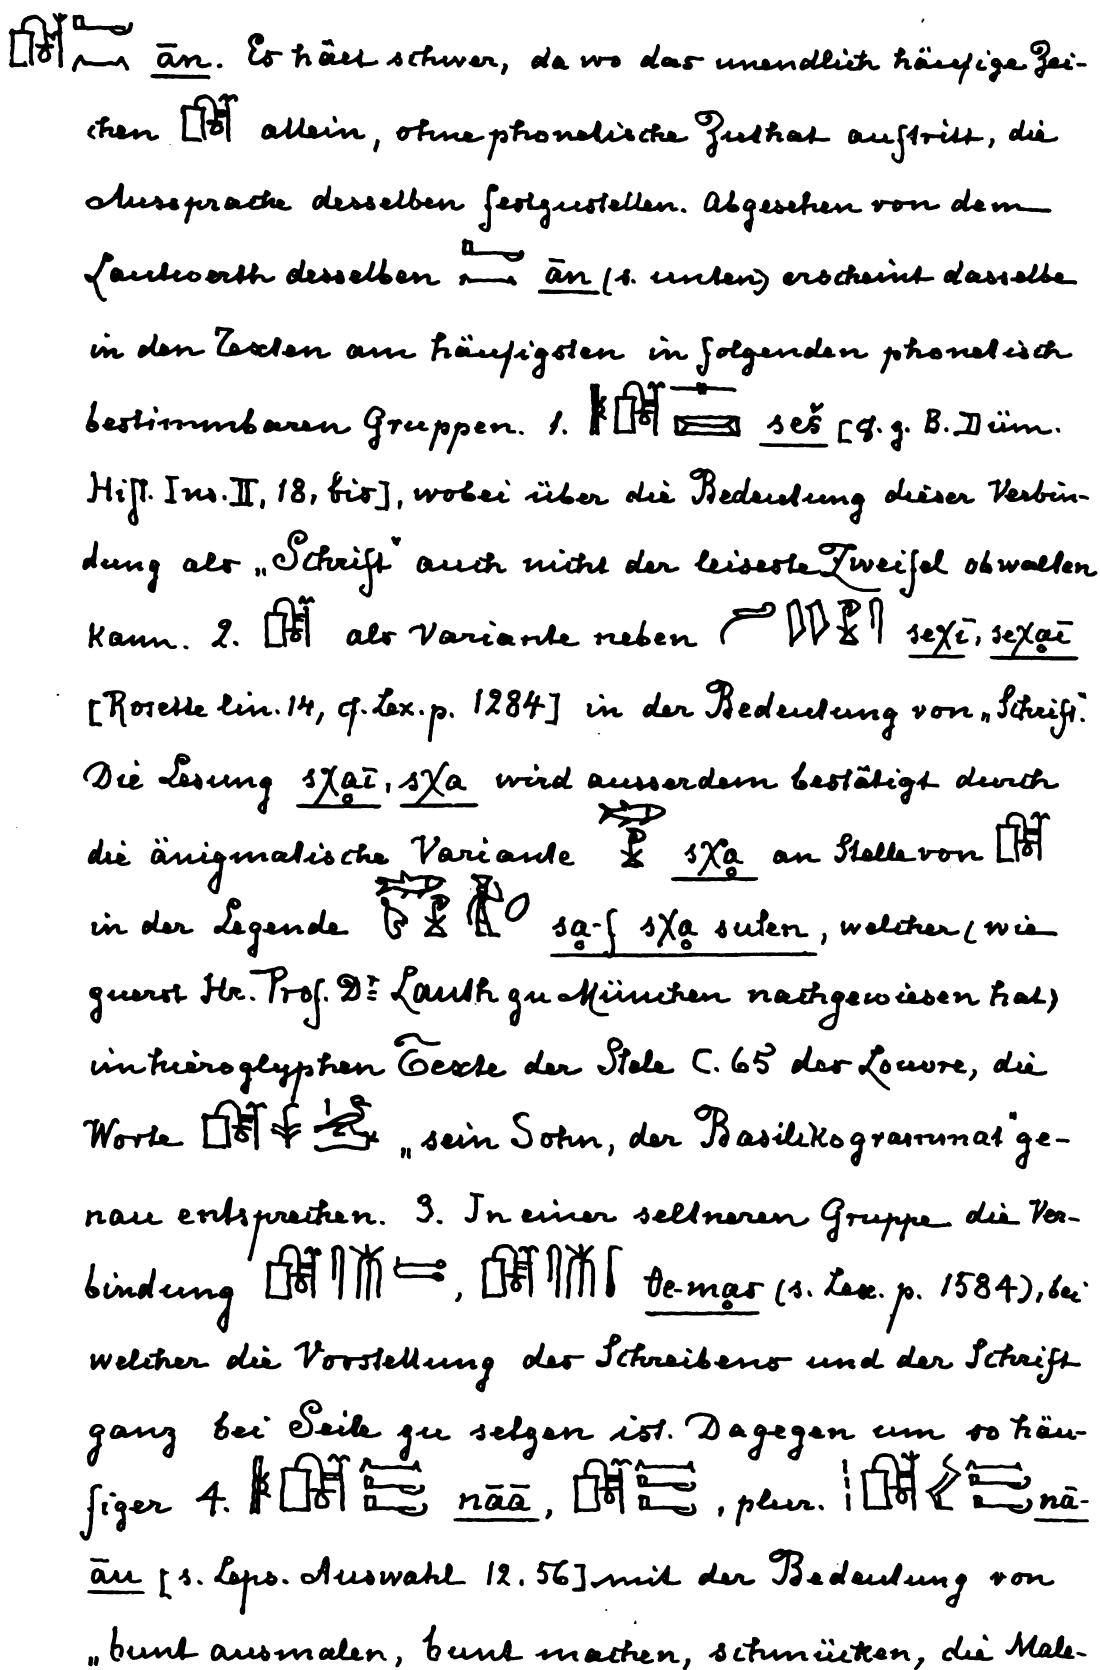 ān. Es hält schwer, da wo das unendlich häufige Zei-
chen allein, ohne phonetische Zuthat auftritt, die
Aussprache desselben festzustellen. Abgesehen von dem
Lautwerth desselben ān (s. unten) erscheint dasselbe
in den Texten am häufigsten in folgenden phonetisch
bestimmbaren Gruppen. 1. seš [cf. z. B. Düm.
Hist. Ins. II, 18, bis], wobei über die Bedeutung dieser Verbin-
dung als „Schrift" auch nicht der leiseste Zweifel obwalten
kann. 2. als Variante neben seχī, seχạī
[Rosette lin. 14, cf. Lex. p. 1284] in der Bedeutung von „Schrift".
Die Lesung sχạī, sχa wird ausserdem bestätigt durch
die änigmatische Variante sχạ an Stelle von
in der Legende sạ-f sχạ suten, welcher (wie
zuerst Hr. Prof. Dr. Lauth zu München nachgewiesen hat)
im hieroglyphen Texte der Stele C. 65 des Louvre, die
Worte „sein Sohn, der Basilikogrammat" ge-
nau entsprechen. 3. In einer seltneren Gruppe die Ver-
bindung , te-mạs (s. Lex. p. 1584), bei
welcher die Vorstellung des Schreibens und der Schrift
ganz bei Seite zu setzen ist. Dagegen um so häu-
figer 4. nāā, , plur. nā-
āu [s. Leps. Auswahl 12. 56] mit der Bedeutung von
„bunt ausmalen, bunt machen, schmücken, die Male-